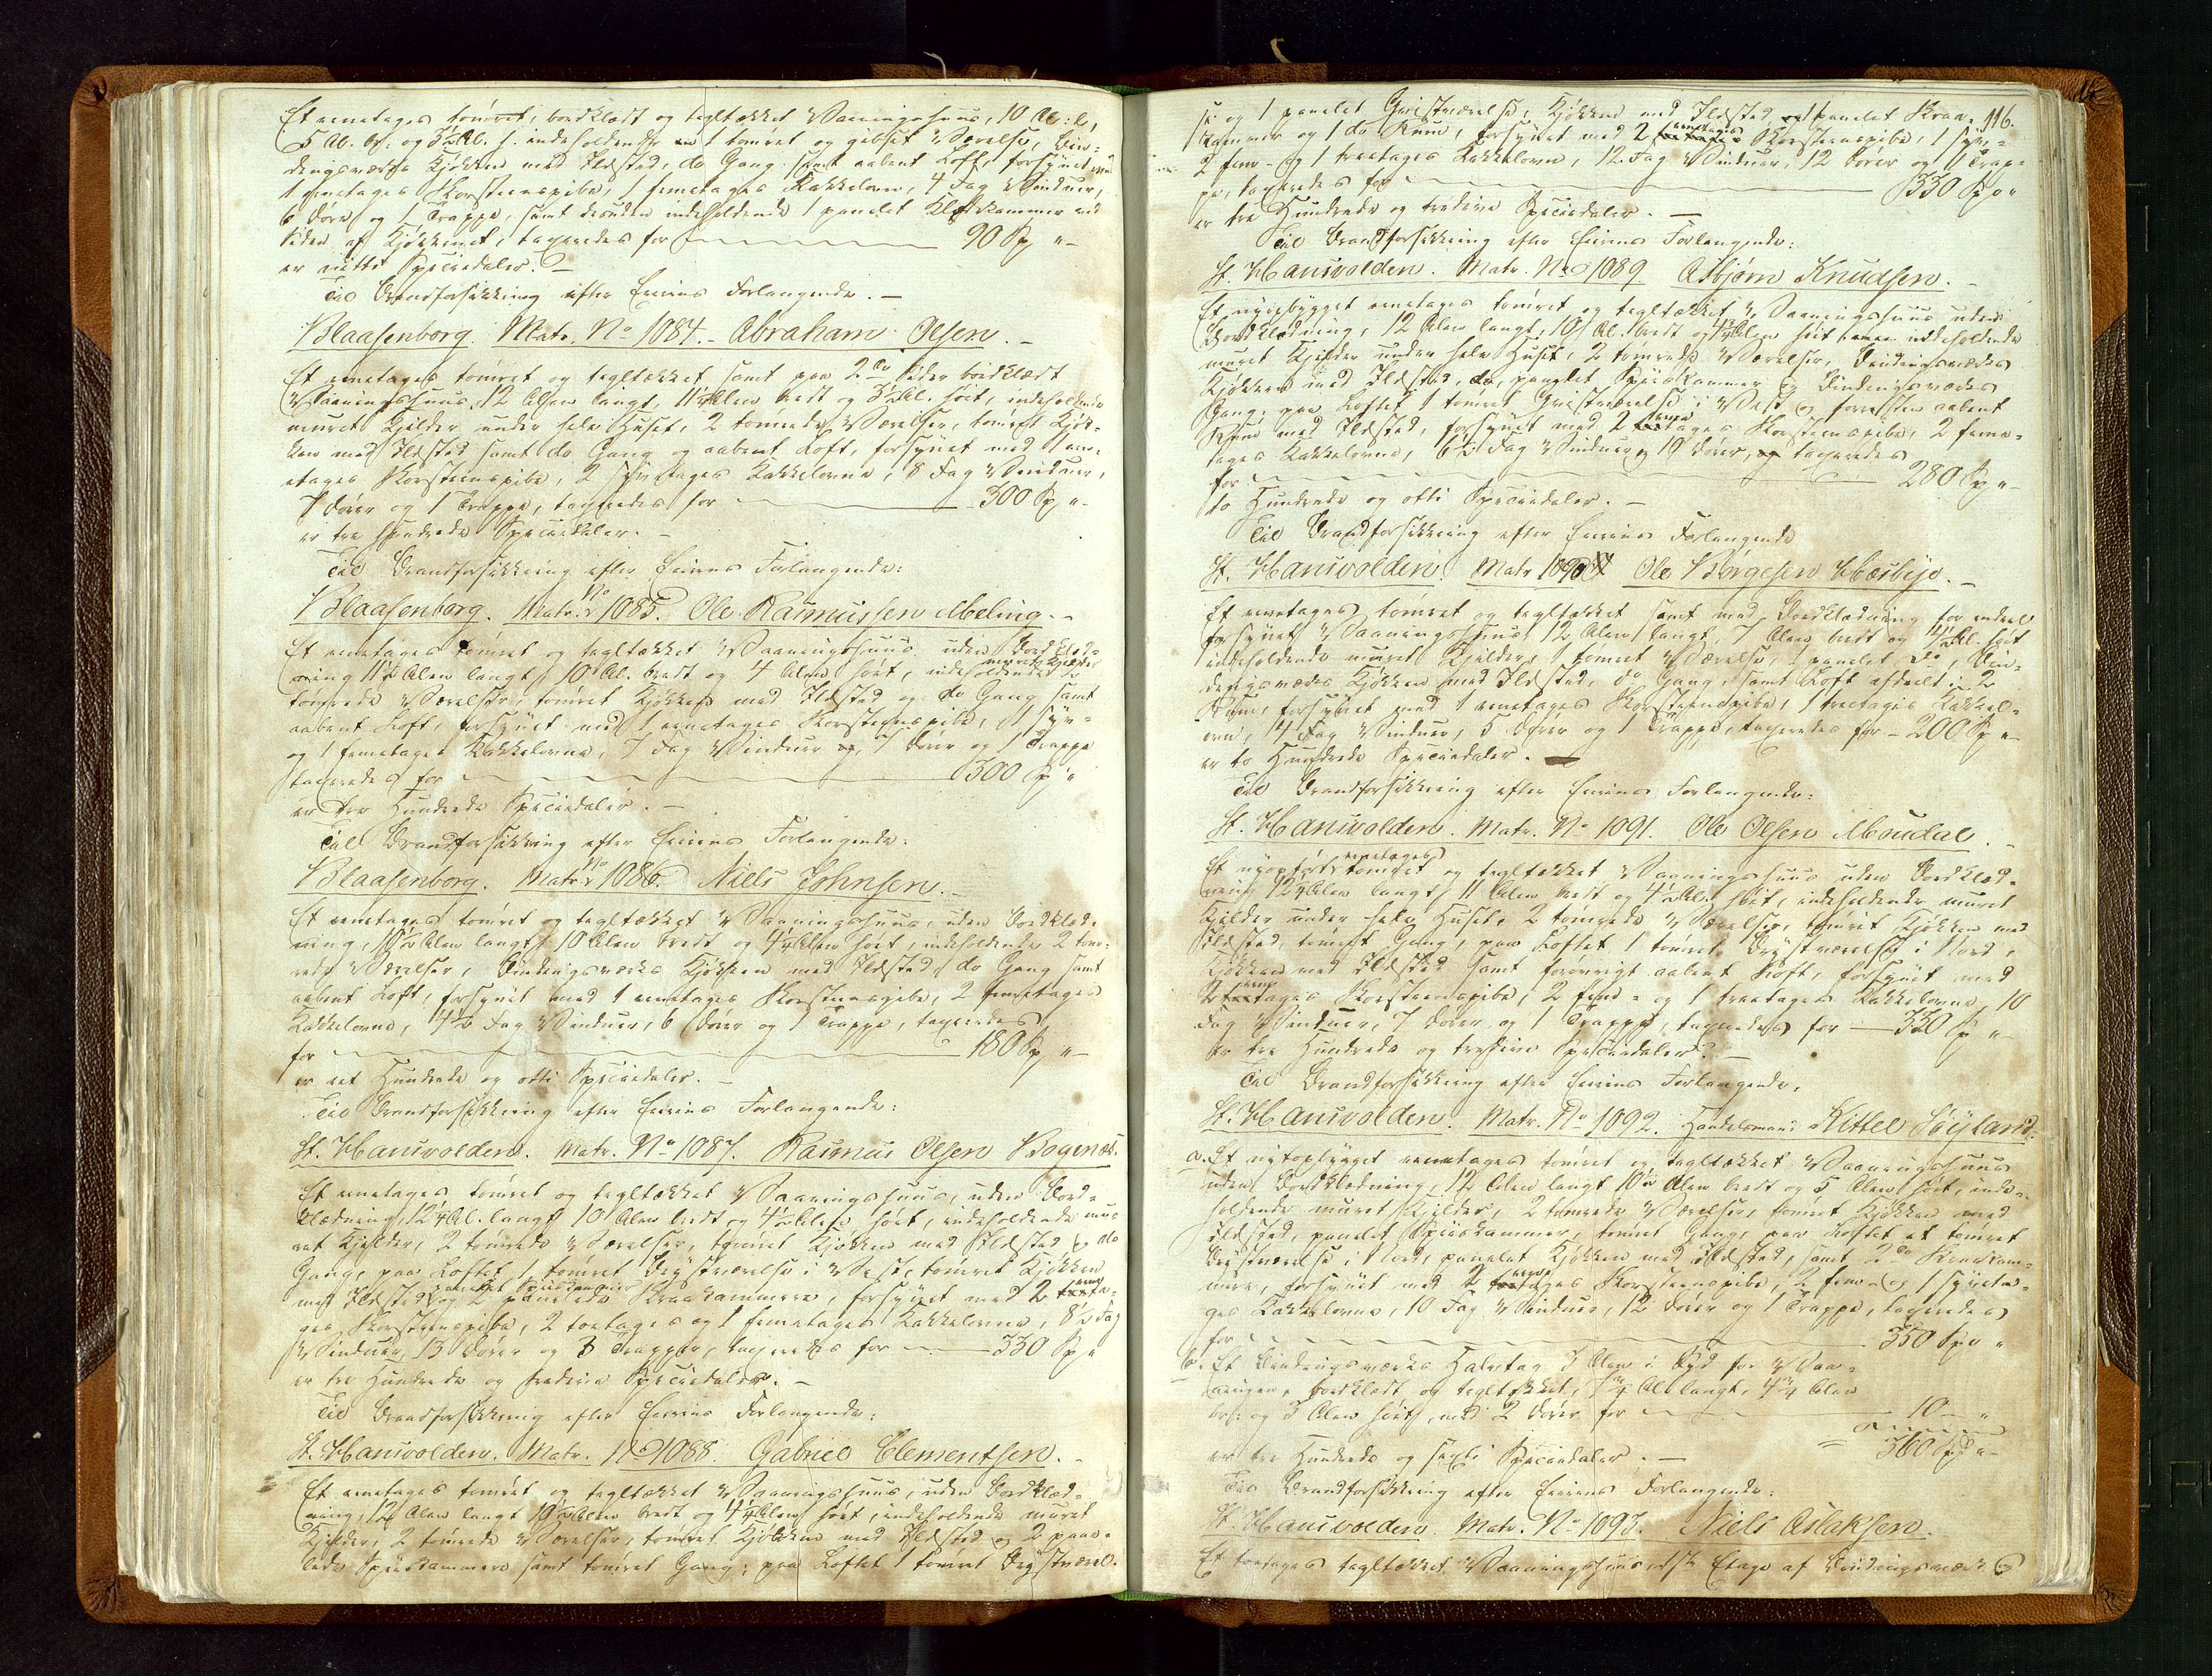 Et eenetages tømret, bordklædt og tegltækket Vaaningshuus, 10 Al: l.,
5 Al. br: og 3½ Al. h. indeholdende 1 tømret og gibset Værelse, Bin-
dingsværks Kjøkken med Ildsted, do Gang samt aabent Loft, forsynet med
1 eenetages Skorsteenspibe, 1 femetages Kakkelovn, 4 Fag Vinduer,
6 Døre og 1 Trappe, samt desuden indeholdende 1 panelet Klædekammer ved
Siden af Kjøkkenet, taxeredes for 90 Sp "-
er nitti Speciedaler. -
Til Brandforsikkring efter Eierens Forlangende. -
Blaasenborg. Matr. No 1084. - Abraham Olsen. -
Et eenetages tømret og tegltækket samt paa 2de Sider bordklædt
Vaaningshuus, 12 Alen langt, 11¼ Alen bredt og 3½ Al. høit, indeholdende
muret Kjelder under hele Huset, 2 tømrede Værelser, tømret Kjøk-
ken med Ildsted samt do Gang og aabent Loft, forsynet med 1 een-
etages Skorsteenspibe, 2 syvetages Kakkelovne, 8 Fag Vinduer,
7 Døre og 1 Trappe, taxeredes for 300 Sp "-
er tre Hundrede Speciedaler. -
Til Brandforsikkring efter Eierens Forlangende:
Blaasenborg. Matr. No 1085. Ole Rasmussen Meling. -
Et eenetages tømret og tegltækket Vaaningshuus uden Bordklæd-
ning 11½ Alen langt, 10 Al. bredt og 4 Alen høit, indeholdende muret Kjelder 2
tømrede Værelser, tømret Kjøkken med Ildsted og do Gang samt
aabent Loft, forsynet med 1 eenetages Skorsteenspibe, 1 syv-
og 1 femetages Kakkelovne, 7 Fag Vinduer, 7 Døre og 1 Trappe
taxeredes for 300 Sp "
er tre Hundrede Speciedaler. -
Til Brandforsikkring efter Eierens Forlangende:
Blaasenborg. Matr. No 1086. Niels Johnsen. -
Et eenetages tømret og tegltækket Vaaningshuus, uden Bordklæd-
ning, 11½ Alen langt, 10 Alen bredt og 4¼ Alen høit, indeholdende 2 tøm-
rede Værelser, Bindingsværks Kjøkken med Ildsted, do Gang samt
aabent Loft, forsynet med 1 eenetages Skorsteenspibe, 2 femetages
Kakkelovne, 4½ Fag Vinduer, 6 Døre og 1 Trappe, taxeredes
for 180 Sp "-
er eet Hundrede og otti Speciedaler. -
Til Brandforsikkring efter Eierens Forlangende:
St. Hansvolden. Matr. No 1087. Rasmus Olsen Bogenæs.
Et eenetages tømret og tegltækket Vaaningshuus, uden Bord-
klædning, 12¼ Al. langt, 10 Alen bredt og 4½ Alen høit, indeholdende mu-
ret Kjelder, 2 tømrede Værelser, tømret Kjøkken med Ildsted og do
Gang, paa Loftet 1 tømret Qvistværelse i Vest, tømret Kjøkken
med Ildsted, panelet Spiiskammer og 2 panelede Skraakammere, forsynet med 2 eeneta-
ges Skorsteenspibe, 2 toetages og 1 femetages Kakkelovne, 8½ Fag
Vinduer, 13 Døre og 3 Trapper, taxeredes for 330 Sp "
er tre Hundrede og tredive Speciedaler. -
Til Brandforsikkring efter Eierens Forlangende:
St. Hansvolden. Matr. No 1088. Gabriel Clementsen. -
Et eenetages tømret og tegltækket Vaaningshuus, uden Bordklæd-
ning, 12 Alen langt 10½ Alen bredt og 4¼ Alen høit, indeholdende muret
Kjelder, 2 tømrede Værelser, tømret Kjøkken med Ildsted og 2 pane-
lede Spiiskammere samt tømret Gang; paa Loftet 1 tømret Qvistværel-
116.
se og 1 panelet Qvistværelse, Kjøkken med Ildsted, panelet Skraa-
kammer og 1 do Rum, forsynet med 2 eenetages Skorsteenspibe, 1 syv-
2 fem- og 1 treetages Kakkelovne, 12 Fag Vinduer, 12 Døre og 1 Trap-
pe, taxeredes for 330 Sp "
er tre Hundrede og tredive Speciedaler. -
Til Brandforsikkring efter Eierens Forlangende:
St. Hansvolden. Matr. No 1089. Asbjørn Knudsen. -
Et nyopbygget eenetages tømret og tegltækket Vaaningshuus uden
Bordklædning, 12 Alen langt, 10 Al. bredt og 4¼ Alen høit indeholdende
muret Kjelder under hele Huset, 2 tømrede Værelser, Bindingsværks
Kjøkken med Ildsted, do, panelet Spiiskammer og Bindingsværks
Gang; paa Loftet 1 tømret Qvistværelse i Vest og forresten aabent
Rum med Ildsted, forsynet med 2 eenetages Skorsteenspibe, 2 feme-
tages Kakkelovne, 6½ Fag Vinduer, 19 Døre, taxeredes
for 280 Sp "-
to Hundrede og otti Speciedaler. -
Til Brandforsikkring efter Eierens Forlangende
St. Hansvolden. Matr 1090 Ole Børgesen Hæsbye. -
Et eenetages tømret og tegltækket samt med Bordklædning for endeel
forsynet Vaaningshuus 12 Alen langt, 7 Alen bredt og 4½ Al. høit
indeholdende muret Kjelder, 1 tømret Værelse, 1 panelet do, Bin-
dingsværks Kjøkken med Ildsted, do Gang, samt Loft afdeelt i 2
Rum, forsynet med 1 eenetages Skorsteenspibe, 1 treetages Kakkel-
ovn, 4 Fag Vinduer, 5 Døre og 1 Trappe, taxeredes for - 200 Sp "-
er to Hundrede Speciedaler. -
Til Brandforsikkring efter Eierens Forlangende:
St. Hansvolden. Matr. No 1091. Ole Olsen Moudal. -
Et nyopført eenetages tømret og tegltækket Vaaningshuus uden Bordklæd-
ning 12¼ Alen langt, 11 Alen bredt og 4½ Alen høit, indeholdende muret
Kjelder under hele Huset, 2 tømrede Værelser, tømret Kjøkken med
Ildsted, tømret Gang, paa Loftet 1 tømret Qvistværelse i Nord,
Kjøkken med Ildsted samt forøvrigt aabent Loft, forsynet med
2 eenetages Skorsteenspibe, 2 fem- og 1 treetages Kakkelovne, 10
Fag Vinduer, 7 Døre og 1 Trappe, taxeredes for 330 Sp "-
er tre Hundrede og tredive Speciedaler. -
Til Brandforsikkring efter Eierens Forlangende,
St. Hansvolden. Matr. No 1092. Handelsmand Kittel Høyland.
a. Et nyopbygget eenetages tømret og tegltækket Vaaningshuus
uden Bordklædning, 12 Alen langt 10½ Alen bredt og 5 Alen høit, inde-
holdende muret Kjelder, 2 tømrede Værelser, tømret Kjøkken med
Ildsted, panelet Spiiskammer, tømret Gang, paa Loftet et tømret
Qvistværelse i Nord, panelet Kjøkken med Ildsted, samt 2 do Skraakam-
mere, forsynet med 2 eenetages Skorsteenspibe, 2 fem- og 1 syveta-
ges Kakkelovne, 10 Fag Vinduer, 12 Døre og 1 Trappe, taxeredes
for 350 Sp "
b. Et Bindingsværks Halvtag 3 Alen i Syd for Vaa-
ningen, bordklædt og tegltækket, 7¾ Al langt, 4¾ Alen
br: og 3 Alen høit, med 2 Døre for 10 - "
360 Sp "-
er tre Hundrede og sexti Speciedaler. -
Til Brandforsikkring efter Eierens Forlangende:
St. Hansvolden. Matr. No 1093. Niels Aslaksen.
Et toetages tegltækket Vaaningshuus, 1ste Etage af Bindingsværk og